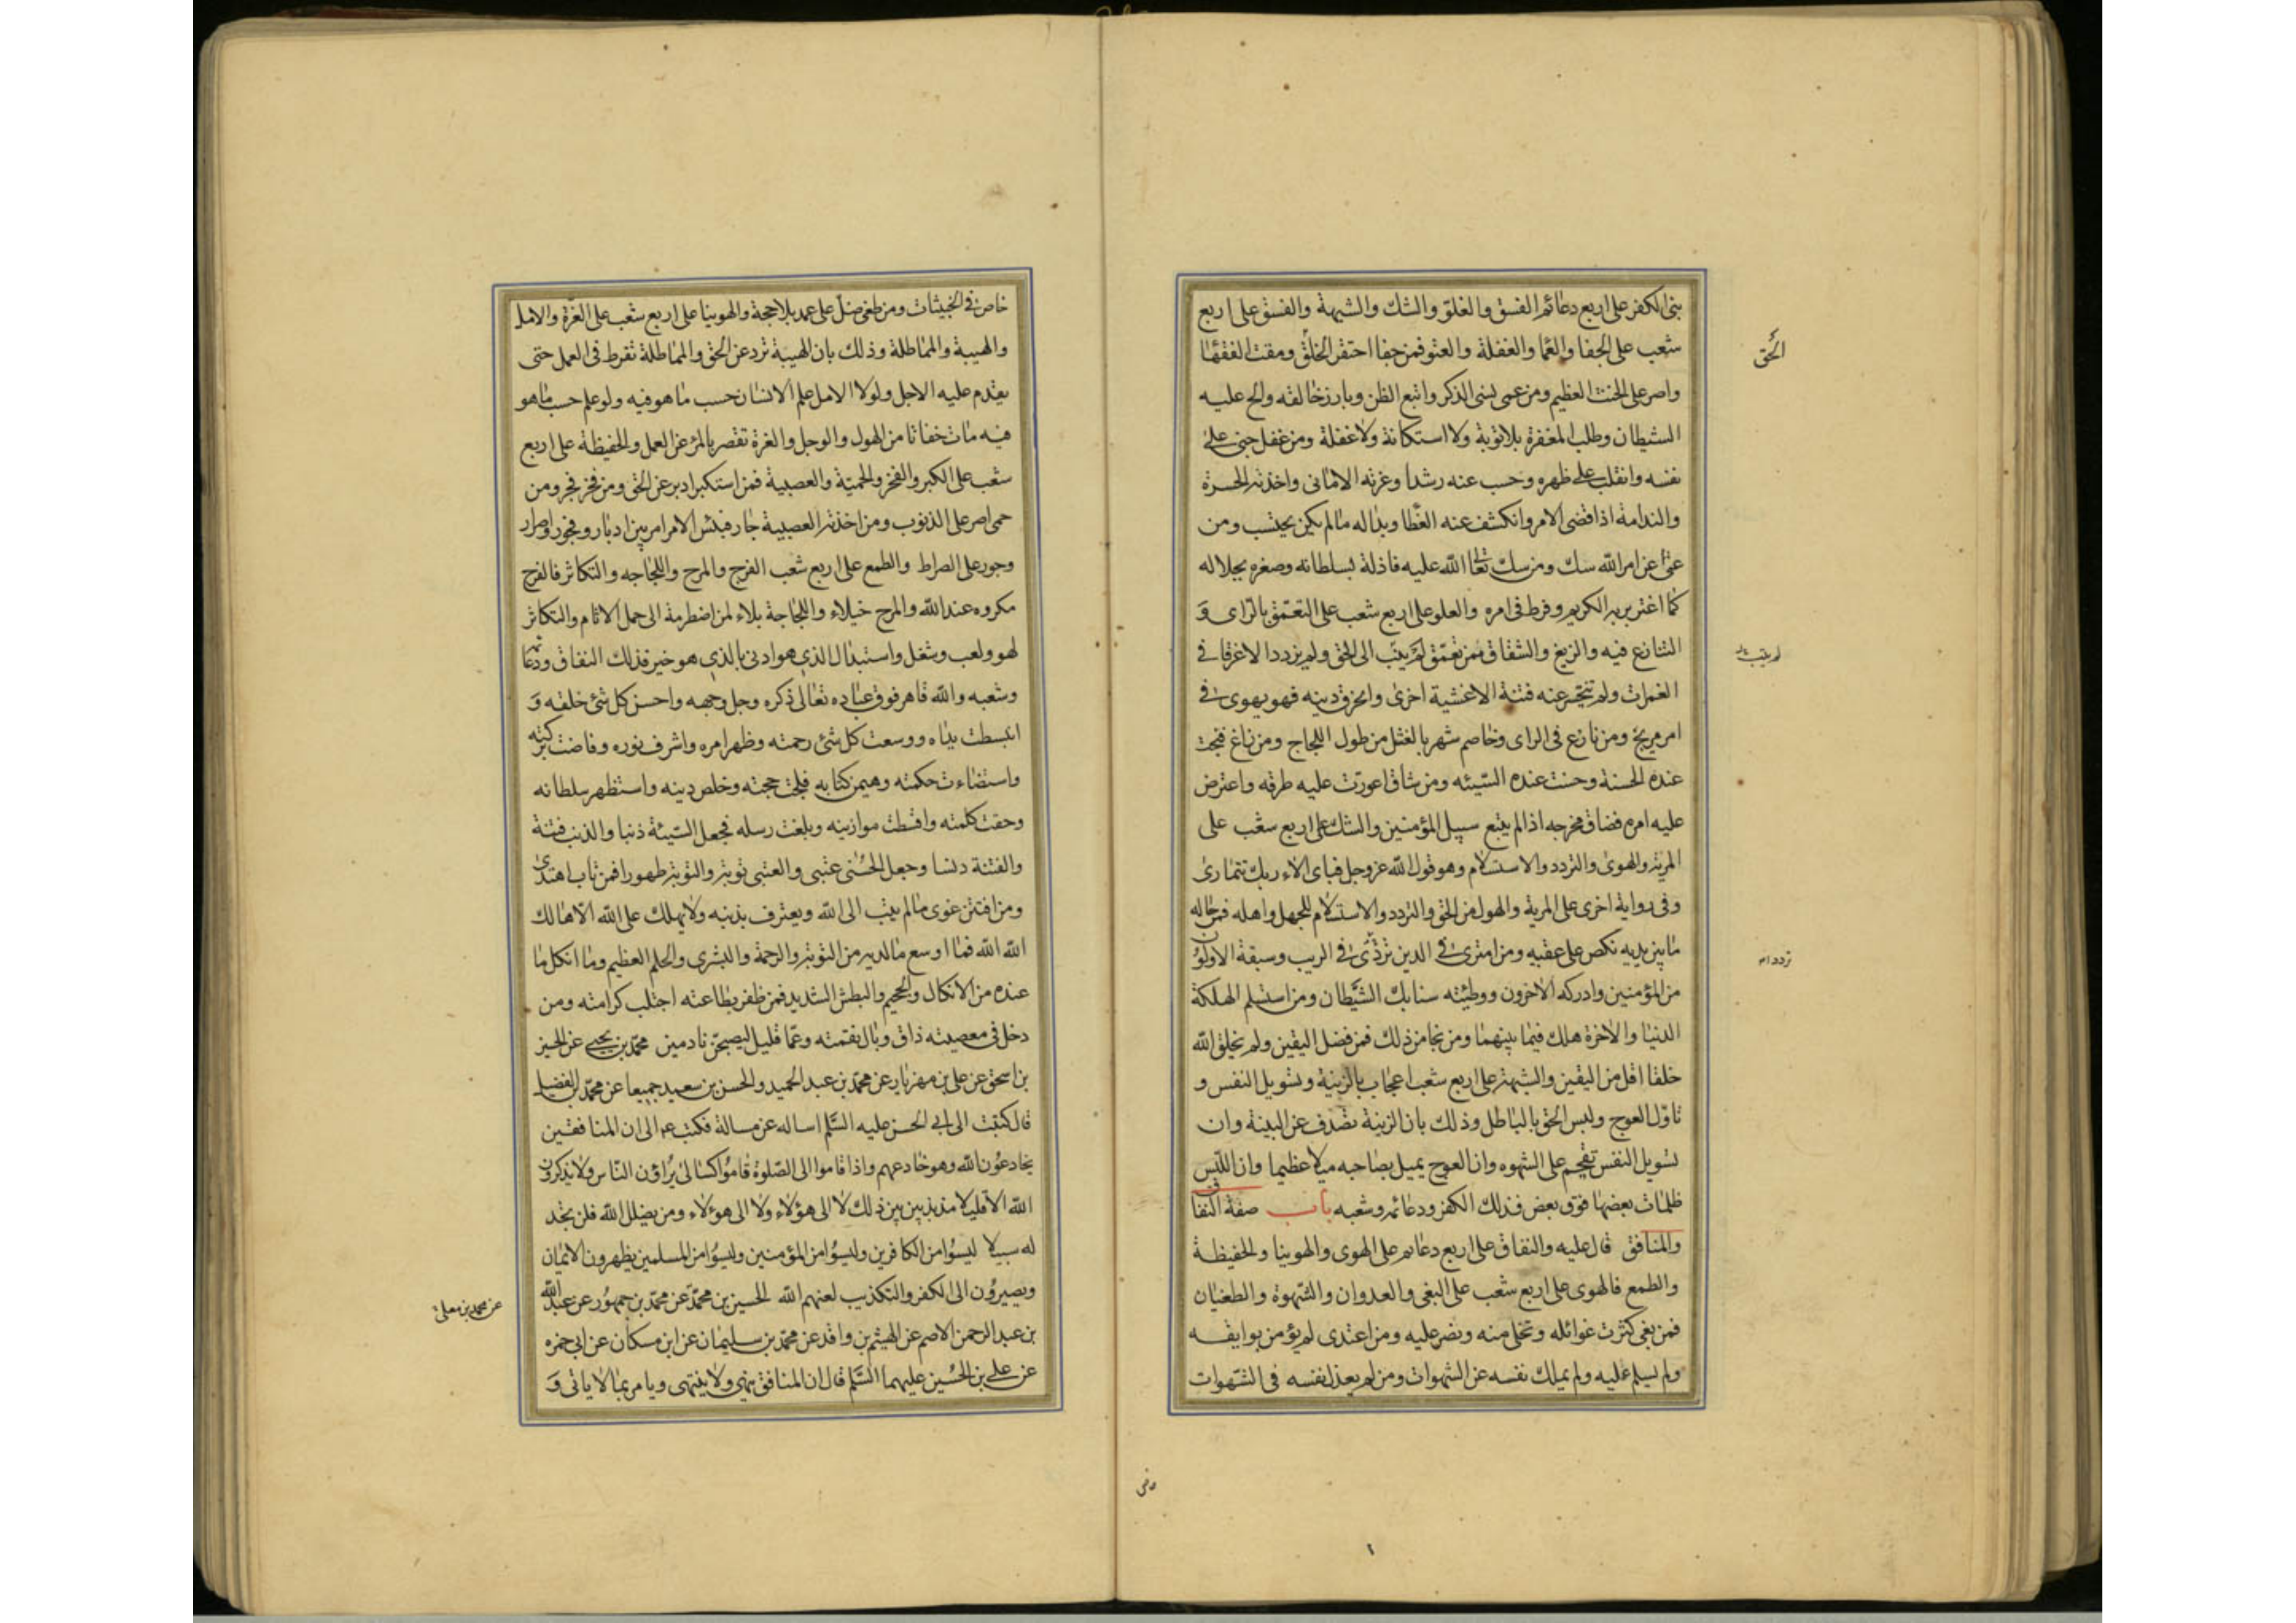 بنى الكفر على اربع دعائم الفسق والغلو والشك والشبهة والفسق على اربع
شعب على الجفا والعما والغفلة والعتو فمن جفا احتقر الخلق ومقت الفقها
الحق
واصر على الحنث العظيم ومن عمى نسى الذكر واتبع الظن وبارز خالقه والح عليه
الشيطان وطلب المغفرة بلا توبة ولا استكانة ولا غفلة ومن غفل جنى على
نفسه وانقلب على ظهره وحسب عنه رشدا وغرته الامانى واخذته الحسرة
والندامة اذا قضى الامر وانكشف عنه الغطا وبدا له ما لم يكن يحتسب ومن
عتى عن امر الله شك ومن شك تعالى الله عليه فاذله بسلطانه وصغره بجلاله
كما اغتر بربه الكريم وفرط فى امره والعلو على اربع شعب على التعمق بالراى و
التنازع فيه والزيغ والشقاق فمن تعمق لم يتب الى الحق ولم يزدد الا غرقا فى
لم ينب
الغمرات ولم تنحسر عنه فتنة الا غشية اخرى وانخرق دينه فهو يهوى فى
امر مريج ومن نازع فى الراى وخاصم شهر بالفشل من طول اللجاج ومن زاغ قبحت
عنده الحسنة وحسنت عنده السيئه ومن شاق اعورت عليه طرقه واعترض
عليه امره فضاق مخرجه اذا لم يتبع سبيل المؤمنين والشك على اربع شعب على
المرية والهوى والتردد والاستسلام وهو قول الله عز وجل فباى الاء ربك تتمارى
وفى رواية اخرى على المرية والهول من الحق والتردد والاستسلام للجهل واهله فمن هاله
ما بين يديه نكص على عقبيه ومن امترى فى الدين تردى فى الريب وسبقه الاولون
تردد
من المؤمنين وادركه الاخرون ووطئته سنابك الشيطان ومن استسلم لهلكة
الدنيا والاخرة هلك فيما بينهما ومن نجا من ذلك فمن فضل اليقين ولم يخلق الله
خلقا اقل من اليقين والشبهة على اربع شعب اعجاب بالزينة وتسويل النفس و
تاول العوج ولبس الحق بالباطل وذلك بان الزينة تصدف عن البينة وان
تسويل النفس تقحم على الشهوه وان العوج يميل بصاحبه ميلا عظيما وان اللبس
ظلمات بعضها فوق بعض فذلك الكفر ودعائمه وشعبه باب صفة النفاق
والمنافق قال عليه والنفاق على اربع دعايم على الهوى والهوينا والحفيظة
والطمع فالهوى على اربع شعب على البغى والعدوان والشهوة والطغيان
فمن بغى كثرت غوائله وتخلى منه ونصر عليه ومن اعتدى لم يؤمن بوايقه
ولم يسلم عليه ولم يملك نفسه عن الشهوات ومن لم يعذل نفسه فى الشهوات
خاض فى الخبيثات ومن طغى ضل على عمد بلا حجة والهوينا على اربع شعب على الغرة والامل
والهيبة والمماطلة وذلك بان الهيبة ترد عن الحق والمماطلة تفرط فى العمل حتى
يقدم عليه الاجل ولولا الامل علم الانسان حسب ما هو فيه ولو علم حسب ما هو
فيه مات خفاتا من الهول والوجل والغرة تقصر بالمرء عن العمل والحفيظة على اربع
شعب على الكبر والفخر والحمية والعصبية فمن استكبر ادبر عن الحق ومن فخر فجر ومن
حمى اصر على الذنوب ومن اخذته العصبية جار فبئس الامر امر بين ادبار وفجور واصرار
وجور على الصراط والطمع على اربع شعب الفرح والمرح واللجاجه والتكاثر فالفرح
مكروه عند الله والمرح خيلاء واللجاجة بلاء لمن اضطرته الى حمل الاثام والتكاثر
لهو ولعب وشغل واستبدال الذى هو ادنى بالذى هو خير فذلك النفاق ودعائمه
وشعبه والله قاهر فوق عباده تعالى ذكره وجل وجهه واحسن كل شئ خلقه و
انبسطت يداه ووسعت كل شئ رحمته وظهر امره واشرف نوره وفاضت بركته
واستضاءت حكمته وهيمن كتابه فلجت حجته وخلص دينه واستظهر سلطانه
وحقت كلمته واقسطت موازينه وبلغت رسله فجعل السيئة ذنبا والذنب فتنة
والفتنة دنسا وجعل الحسنى عتبى والعتبى توبة والتوبة طهورا فمن تاب اهتدى
ومن افتتن غوى ما لم يتب الى الله ويعترف بذنبه ولا يهلك على الله الا هالك
الله الله فما اوسع ما لديه من التوبة والرحمة والبشرى والحلم العظيم وما انكل ما
عنده من الانكال والجحيم والبطش الشديد فمن ظفر بطاعته اجتلب كرامته ومن
دخل فى معصيته ذاق وبال نقمته وعما قليل ليصبحن نادمين محمد بن يحيى عن الحسين
بن اسحق عن على بن مهزيار عن محمد بن عبد الحميد والحسن بن سعيد جميعا عن محمد بن الفضيل
قال كتبت الى ابى الحسن عليه السلم اساله عن مسالة فكتب الى ان المنافقين
يخادعون الله وهو خادعهم واذا قاموا الى الصلوة قاموا كسالى يراؤن الناس ولا يذكرون
الله الا قليلا مذبذبين بين ذلك لا الى هؤلاء ولا الى هؤلاء ومن يضلل الله فلن تجد
له سبيلا ليسوا من الكافرين وليسوا من المؤمنين وليسوا من المسلمين يظهرون الايمان
ويصيرون الى الكفر والتكذيب لعنهم الله الحسين بن محمد عن محمد بن جمهور عن عبد الله
عن محمد بن معلى
بن عبد الرحمن الاصم عن الهيثم بن واقد عن محمد بن سليمان عن ابن مسكان عن ابى حمزه
عن على بن الحسين عليهما السلم قال ان المنافق ينهى ولا ينتهى ويامر بما لا ياتى و